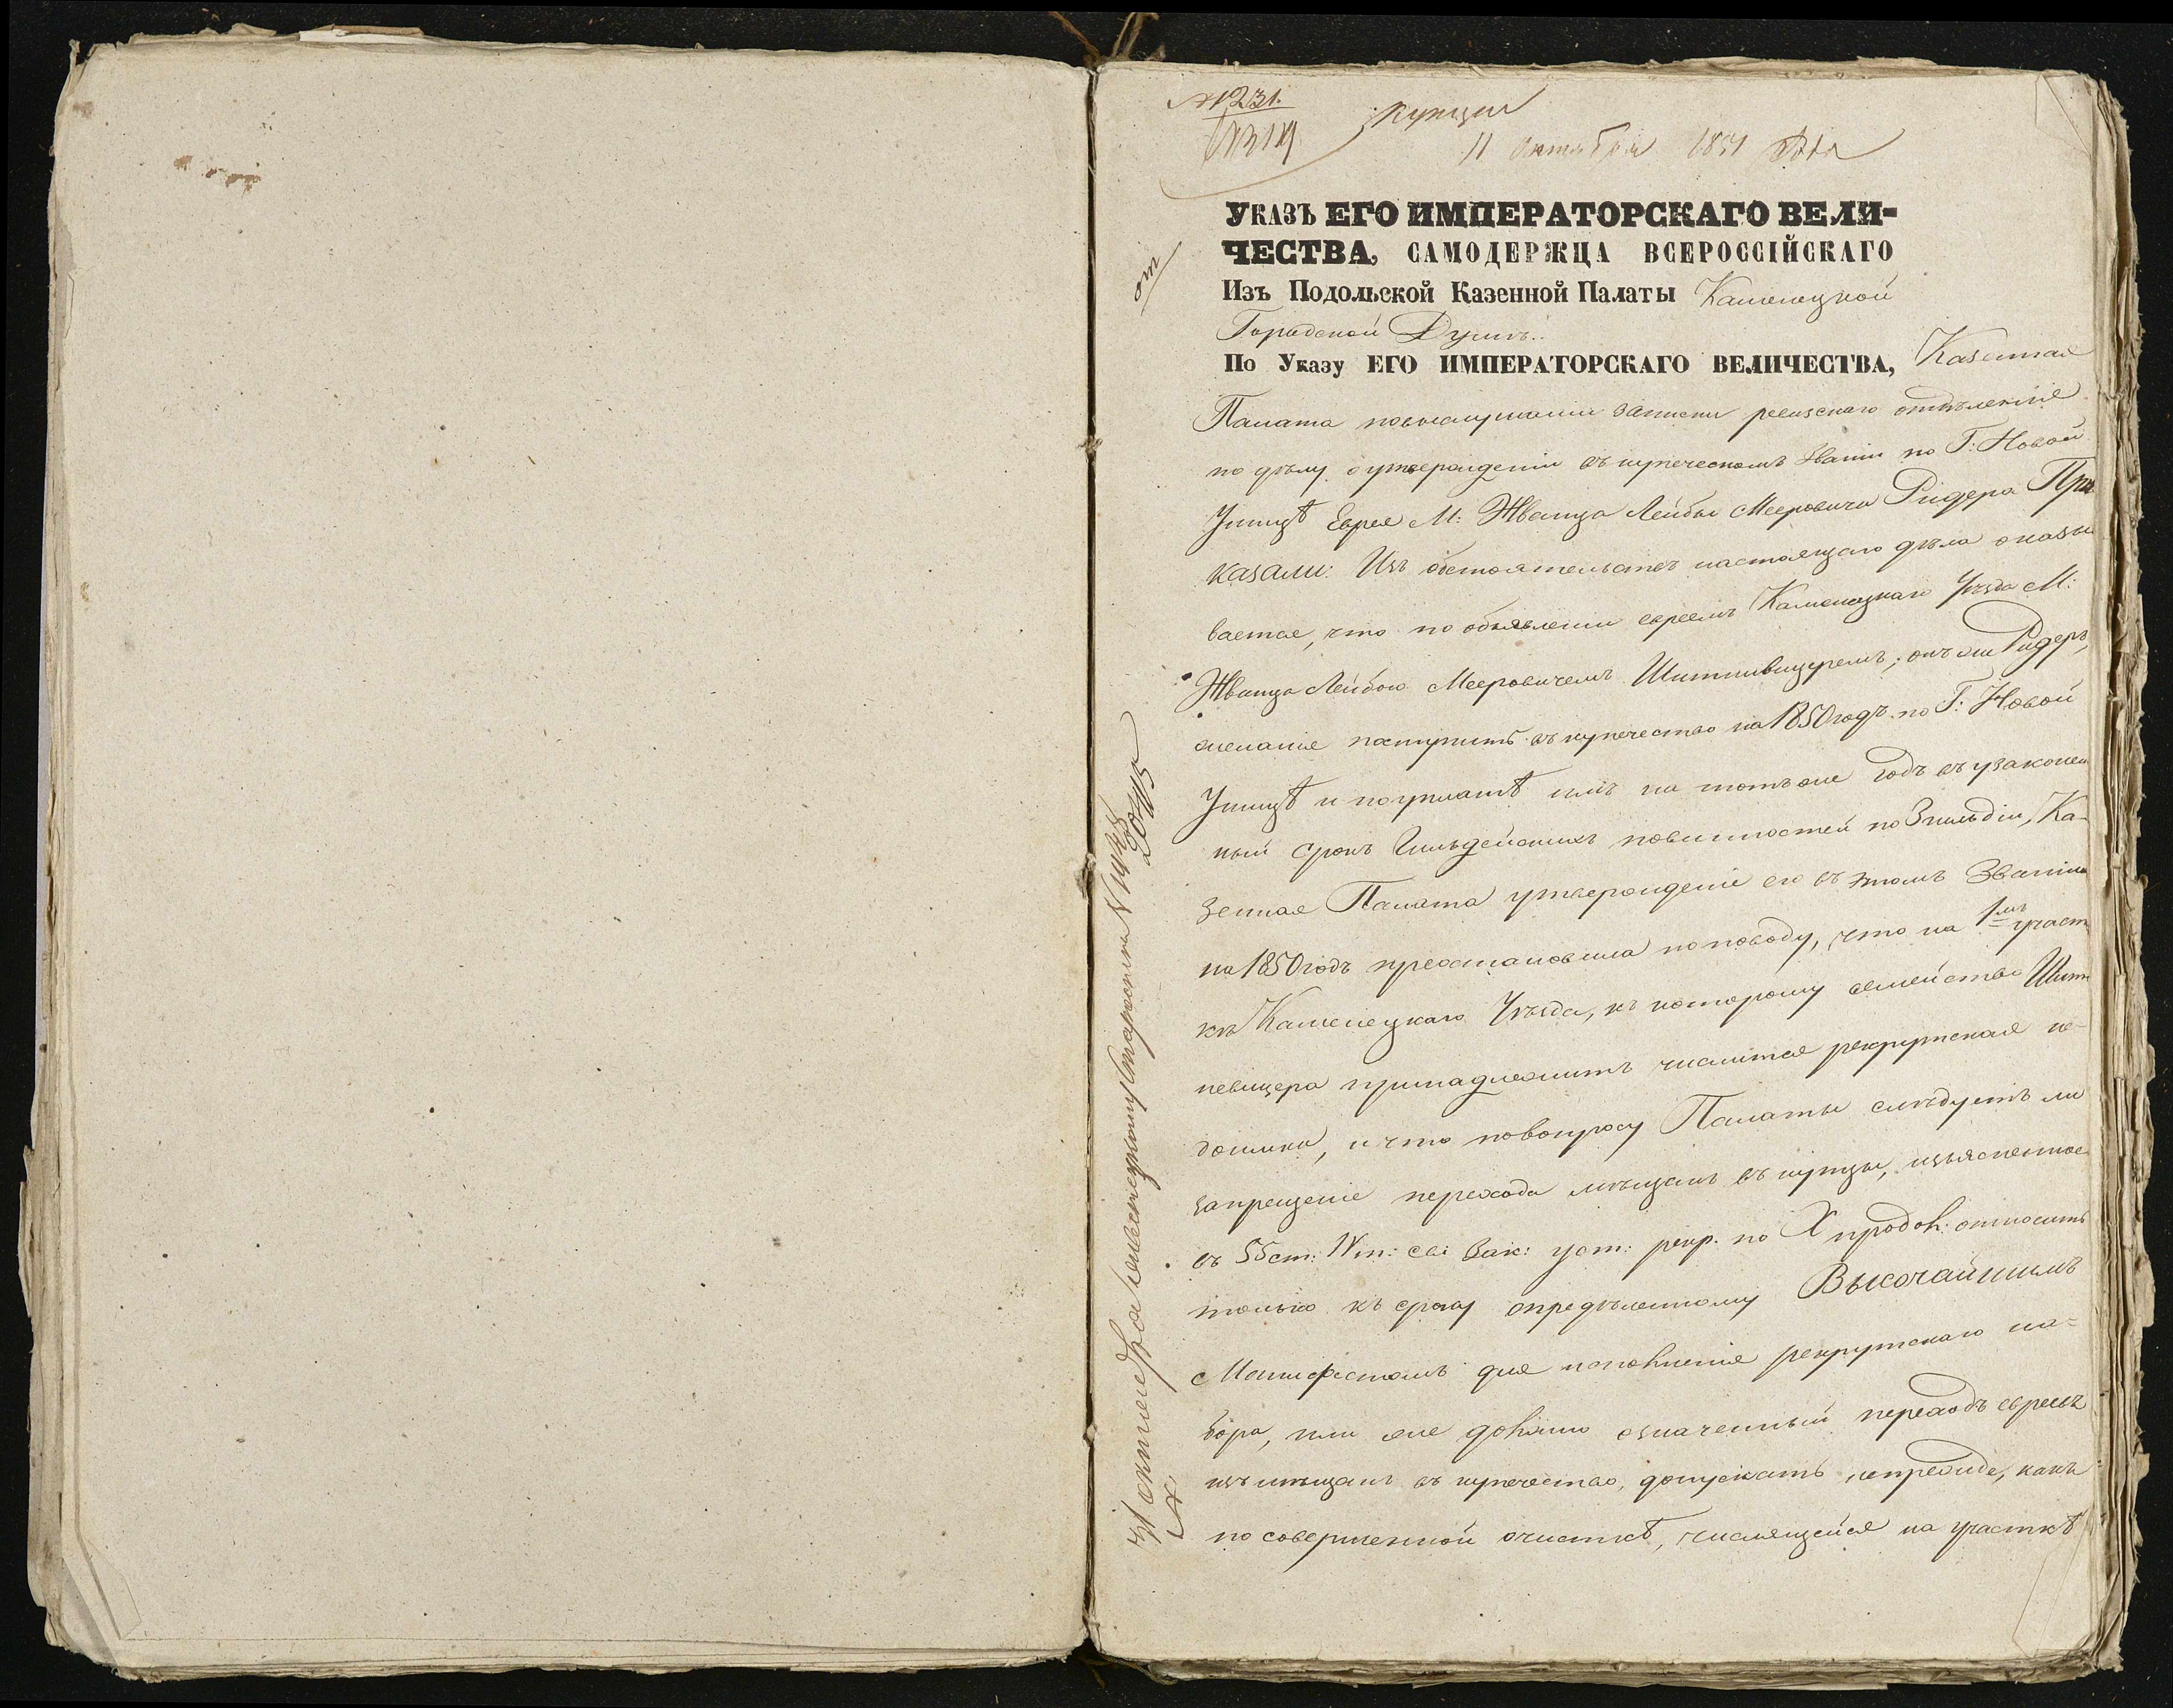 №1231.
купцы
11 октября 1851 года
УКАЗЪ ЕГО ИМПЕРАТОРСКАГО ВЕЛИ-
ЧЕСТВА, САМОДЕРЖЦА ВСЕРОССІЙСКАГО
Изъ Подольской Казенной Палаты Каменецкой
Городской Думѣ..
По Указу ЕГО ИМПЕРАТОРСКАГО ВЕЛИЧЕСТВА, Казенная
Палата по выслушаніи записки ревизскаго отдѣленія
по дѣлу о утвержденіи въ купеческомъ званіи по Г: Новой
Ушицѣ Еврея М: Жванца Лейбы Мееровича Ридера При
казали: Изъ обстоятельствъ настоящаго дѣла оказы
вается, что по объявленіи евреемъ Каменецкаго Уѣзда М:
Жванца Лейбою Мееровичемъ онъ же Ридеръ,
желанія поступить въ купечество на 1850 годъ по Г: Новой
Ушицѣ и по уплатѣ имъ на тотъ же годъ въ узаконен
ный срокъ Гильдейскихъ повинностей по 3 гильдіи, Ка-
зенная Палата утвержденіе его въ этомъ Званіи
на 1850 годъ пріостановила по поводу, что на 1мъ участ
кѣ Каменецкаго Уѣзда, къ которому семейство
принадлежитъ числится рекрутская не-
доимка, и что по вопросу Палаты слѣдуетъ ли
запрещеніе перехода мѣщанъ въ купцы, изъясненное
въ 55 ст: IV т: Св: Зак: уст: рекр. по X продол: относить
только къ сроку опредѣленному Высочайшимъ
Манифестомъ для исполненія рекрутскаго на-
бора, или же должно означенный переходъ евреевъ
изъ мѣщанъ въ купечество, допускать непрежде, какъ
по совершенной очисткѣ, числящейся на участкѣ